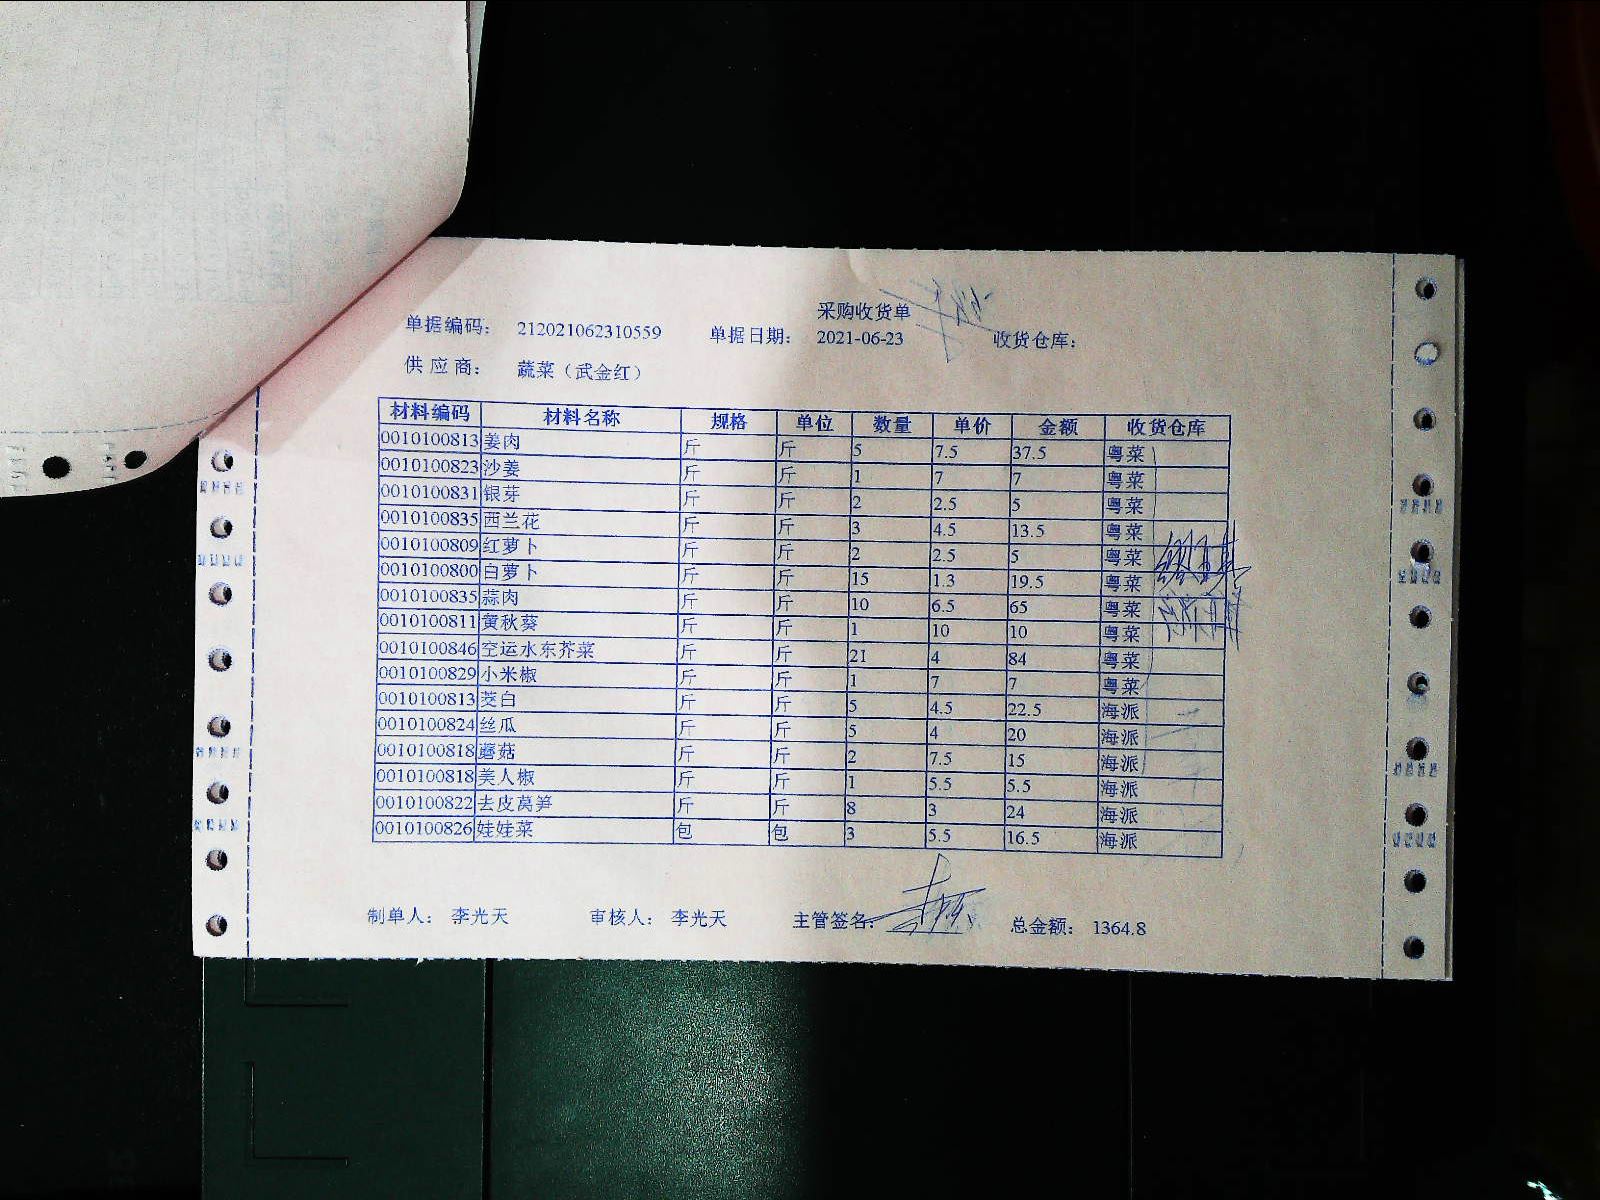 采购收货单
单据编码： 212021062310559 单据日期： 2021-06-23 收货仓库：
供 应 商： 蔬菜（武金红）
材料编码 材料名称 规格 单位 数量 单价 金额 收货仓库
0010100813 姜肉 斤 斤 5 7.5 37.5 粤菜
0010100823 沙姜 斤 斤 1 7 7 粤菜
0010100831 银芽 斤 斤 2 2.5 5 粤菜
0010100835 西兰花 斤 斤 3 4.5 13.5 粤菜
0010100809 红萝卜 斤 斤 2 2.5 5 粤菜
0010100800 白萝卜 斤 斤 15 1.3 19.5 粤菜
0010100835 蒜肉 斤 斤 10 6.5 65 粤菜
0010100811 黄秋葵 斤 斤 1 10 10 粤菜
0010100846 空运水东芥菜 斤 斤 21 4 84 粤菜
0010100829 小米椒 斤 斤 1 7 7 粤菜
0010100813 茭白 斤 斤 5 4.5 22.5 海派
0010100824 丝瓜 斤 斤 5 4 20 海派
0010100818 蘑菇 斤 斤 2 7.5 15 海派
0010100818 美人椒 斤 斤 1 5.5 5.5 海派
0010100822 去皮莴笋 斤 斤 8 3 24 海派
0010100826 娃娃菜 包 包 3 5.5 16.5 海派
制单人： 李光天 审核人： 李光天 主管签名： 总金额： 1364.8